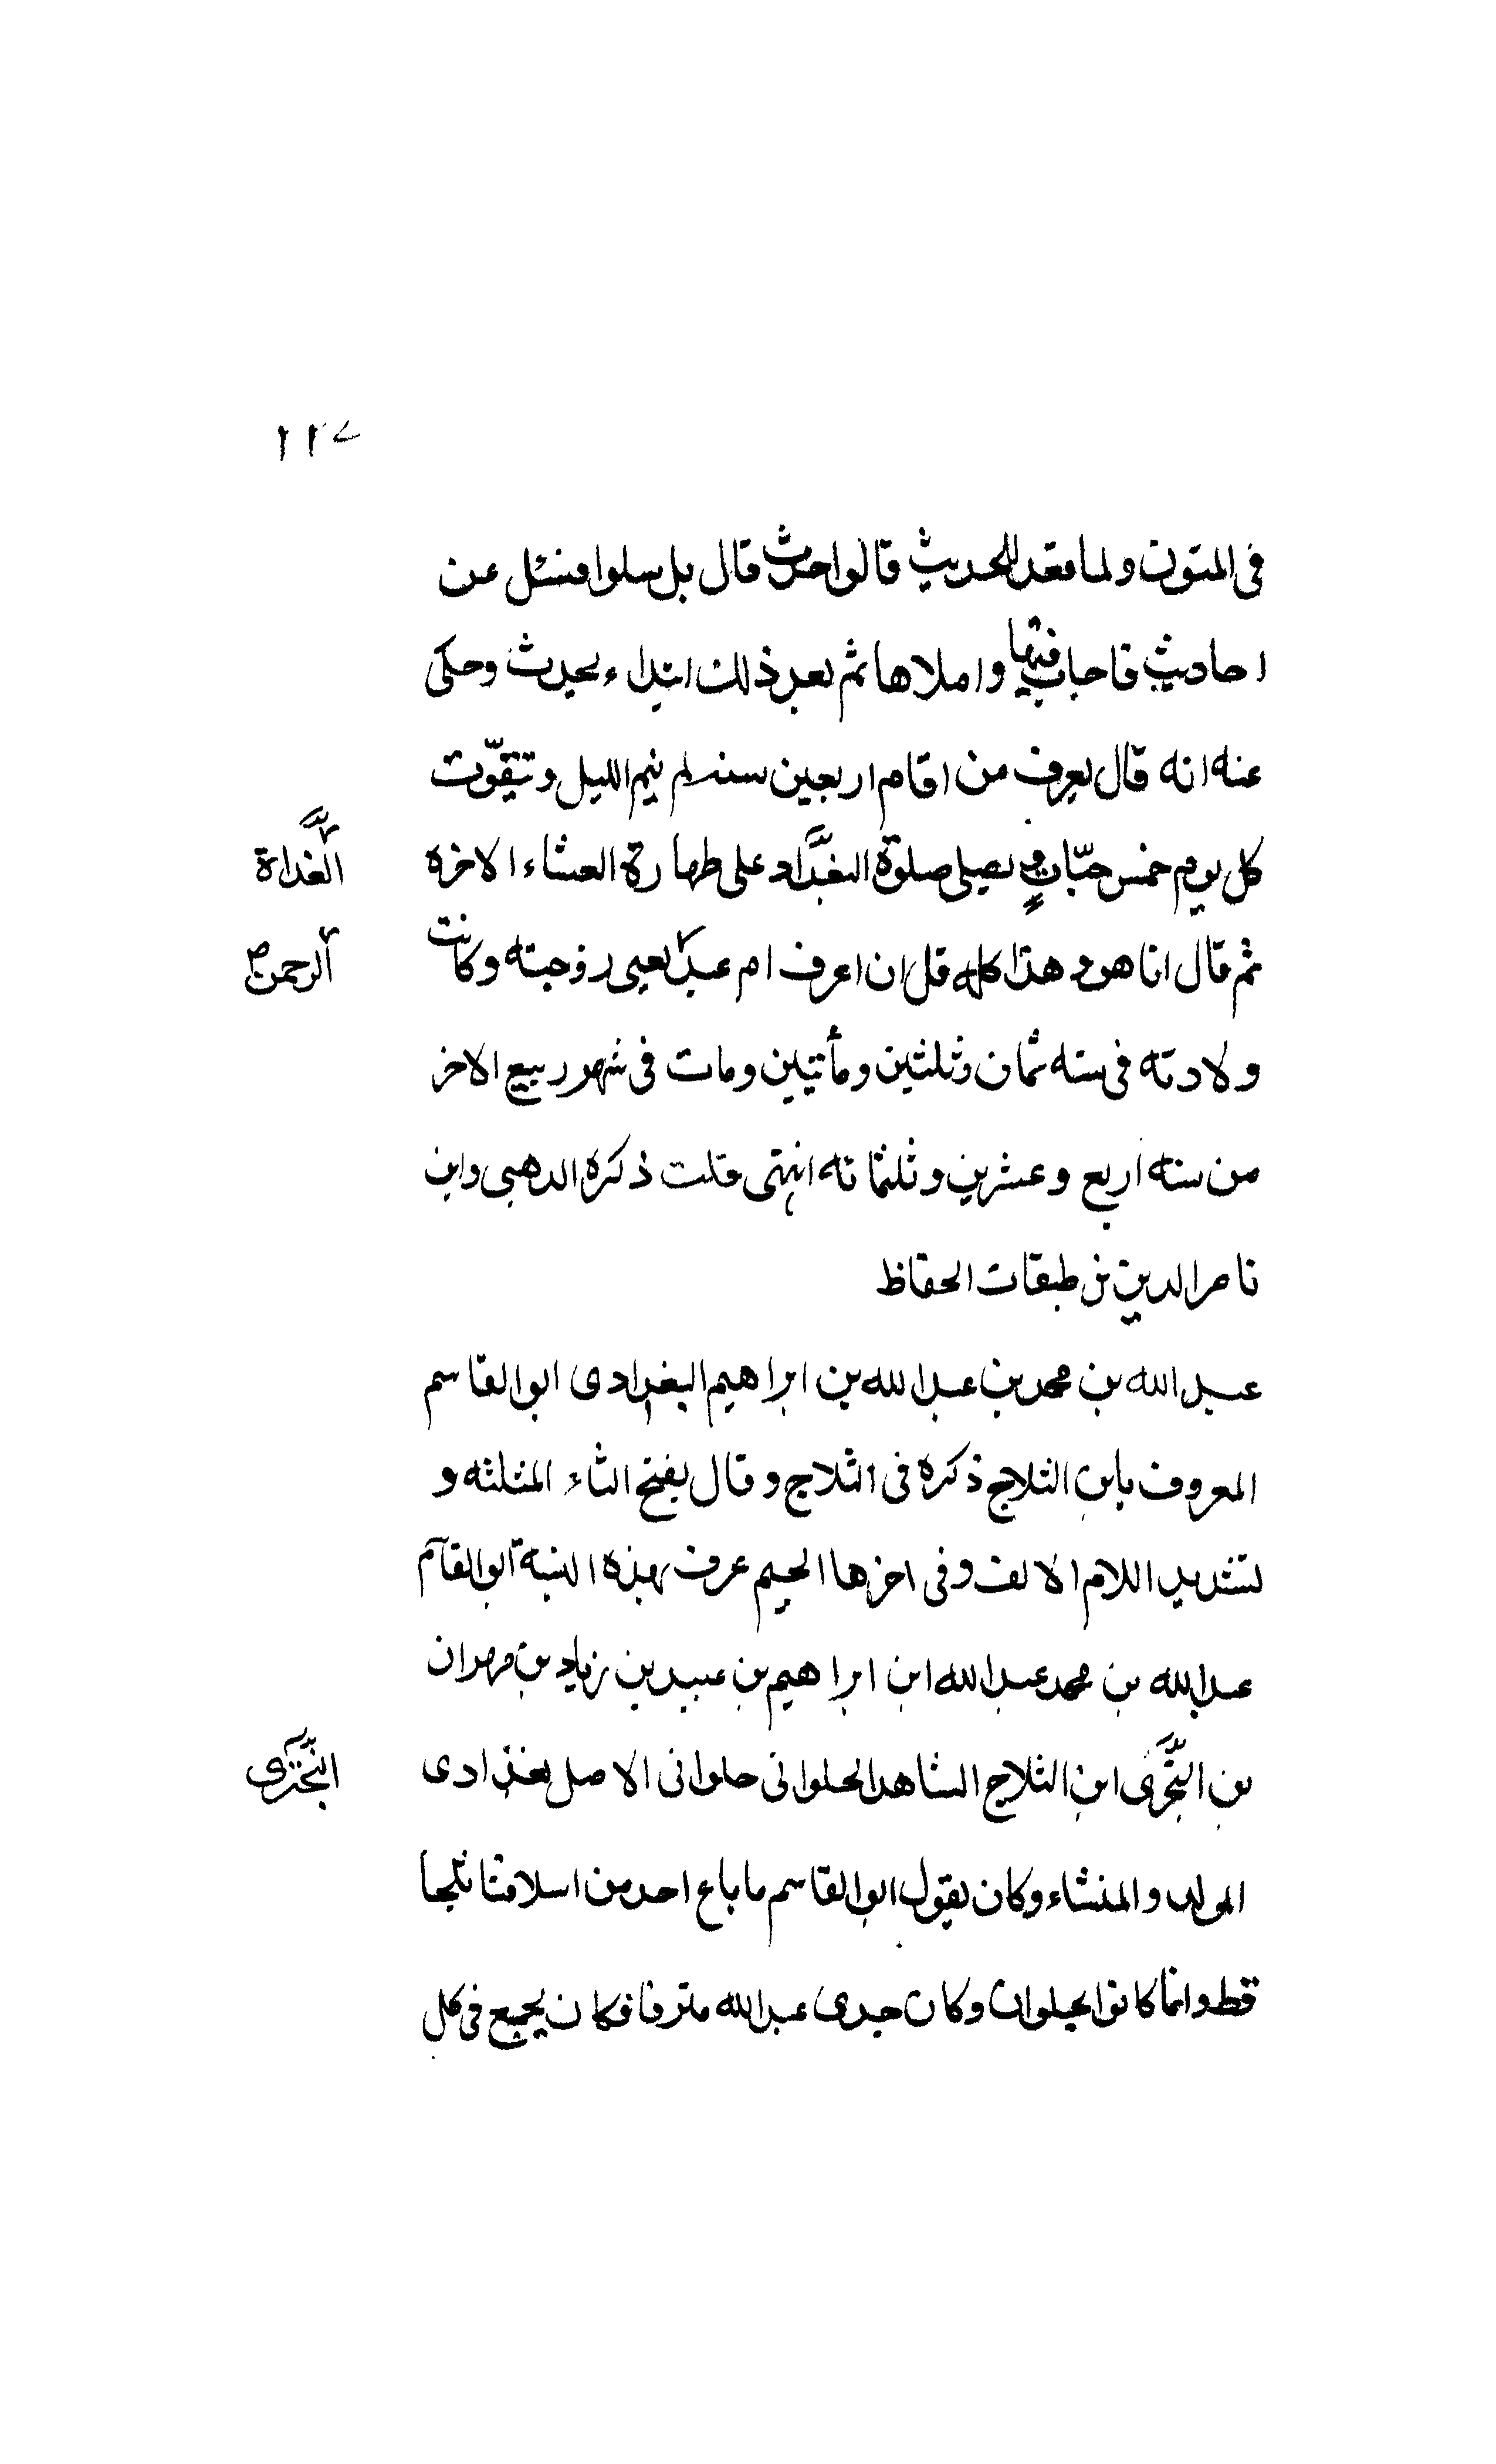 ١١٧
فى المتون ولما قعد للحديث قالوا حدث قال بل سلوا فسئل عن
احاديث فاجاب فيها واملاها ثم بعد ذلك ابتداء يحدث وحكى
عنه انه قال يعرف من اقام اربعين سنه لم ينم الليل وتيقوّت
كل يوم خمس حبّات و يصلى صلوة البغداد على طهارة العشاء الاخره
الغداة
ثم قال انا هو و هذا كله قل ان اعرف ام عبد يعنى زوجته وكانت
الرحمن ص
ولادته فى سنه ثمان وثلثين ومأتيين ومات فى شهور ربيع الاخر
من سنه اربع وعشرين وثلثمائه انتهى قلت ذكره الذهبى وابن
ناصر الدين من طبقات الحفاظ
عبد الله بن محمد بن عبد الله بن ابراهيم البغدادى ابو القاسم
المعروف بابن الثلاج ذكره فى الثلاج وقال بفتح الثاء المثلثه و
تشديد اللام الالف وفى اخرها الجيم عرف بهذه النسبة ابو القاسم
عبد الله بن محمد عبد الله ابن ابراهيم بن عبيد بن زياد بن مهران
بن البخترى ابن الثلاج الشاهد الحلوانى حلوانى الاصل بغدادى
البخترى
المولد والمنشاء وكان يقول ابو القاسم ما باع احد من اسلافنا ثلجا
قط وانما كانوا بحلوان وكان جدى عبد الله مترفا فكان يجمع فى كل